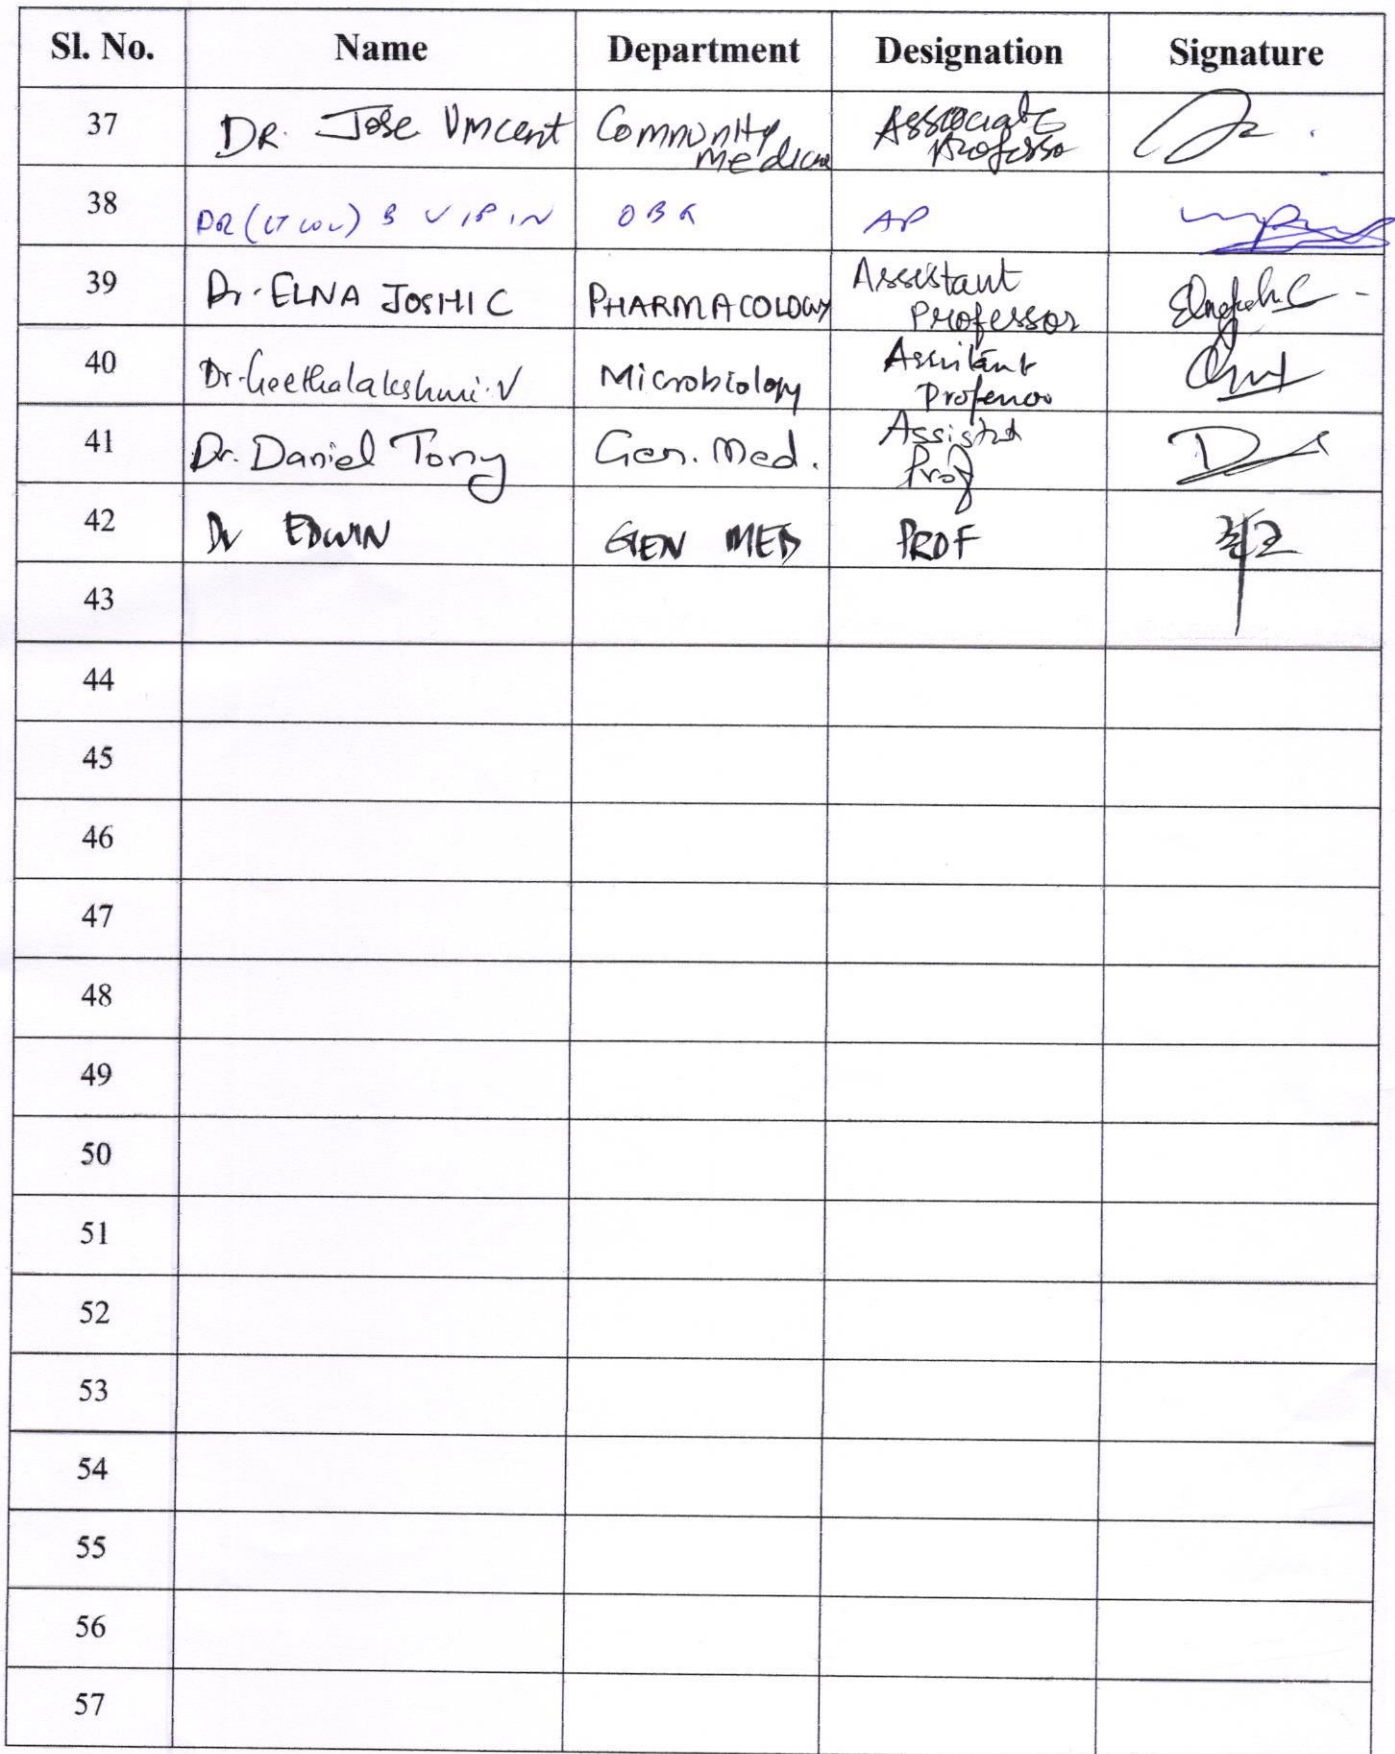 Sl. No. Name Department Designation Signature
37 DR. Jose Vincent Community Medicine Associate Professor
38 DR (LT COL) B VIPIN OBG AP
39 Dr. ELNA JOSHI C PHARMACOLOGY Assistant Professor
40 Dr. Geethalakshmi. V Microbiology Assistant Professor
41 Dr. Daniel Tony Gen. Med. Assistant Prof
42 Dr EDWIN GEN MED PROF
43
44
45
46
47
48
49
50
51
52
53
54
55
56
57